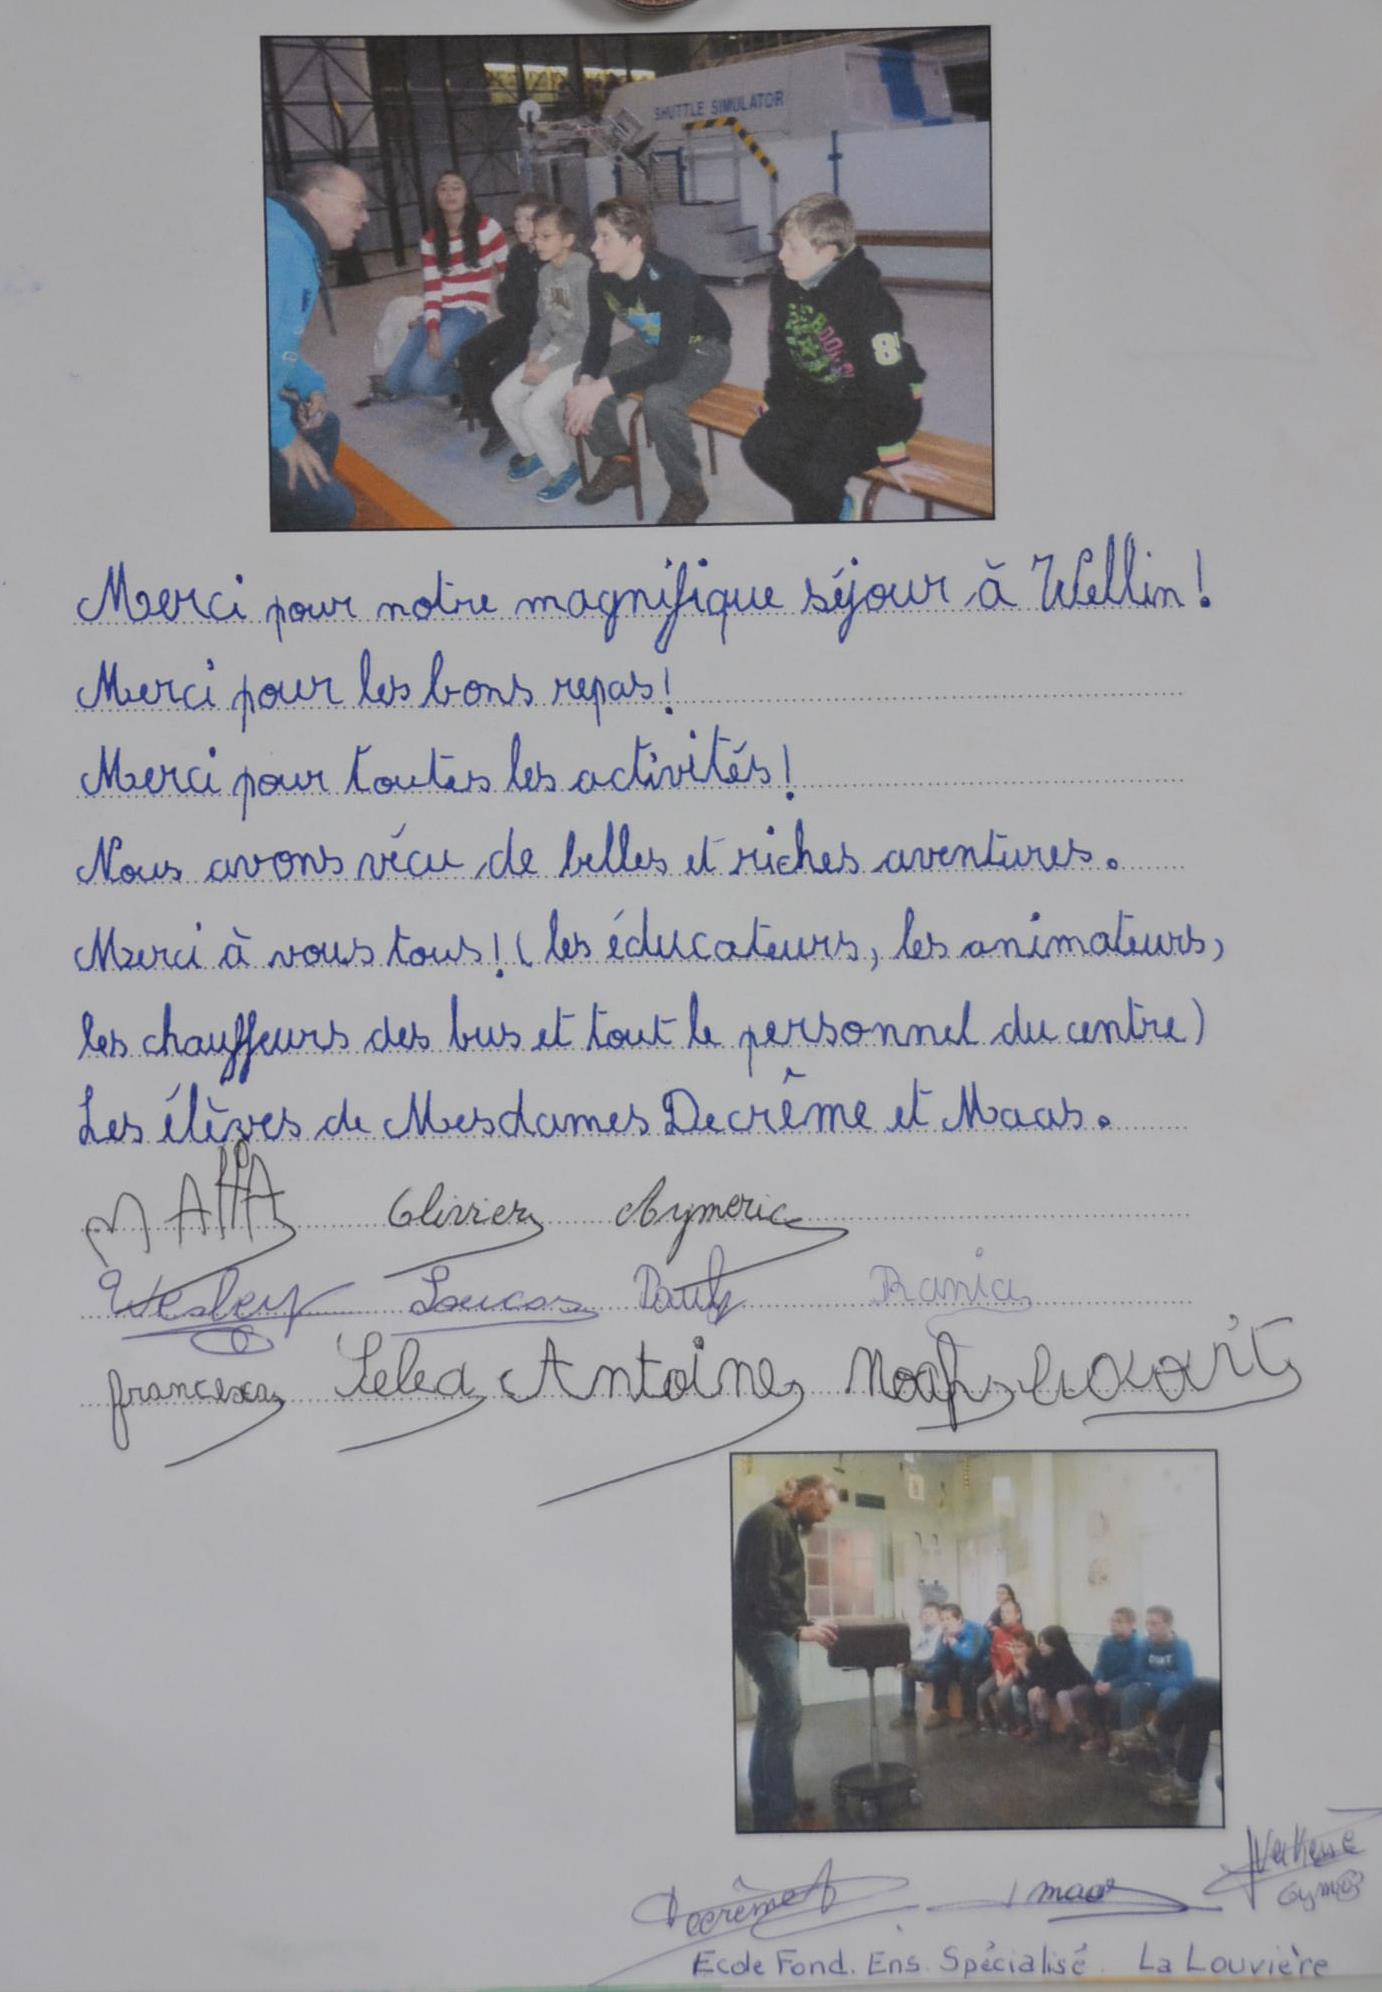 SHUTTLE SIMULATOR
8
Merci pour notre magnifique séjour à Wellin!
Merci pour les bons repas!
Merci pour toutes les activités!
Nous avons vécu de belles et riches aventures.
Merci à vous tous! (les éducateurs, les animateurs,
les chauffeurs des bus et tout le personnel du centre)
Les élèves de Mesdames Decrême et Maas.
Olivier Aymeric
Wesley Loucas Pauly Rania
francesca Antoine Noah
Decrême maas
Gym
Ecole Fond. Ens. Spécialisé La Louvière